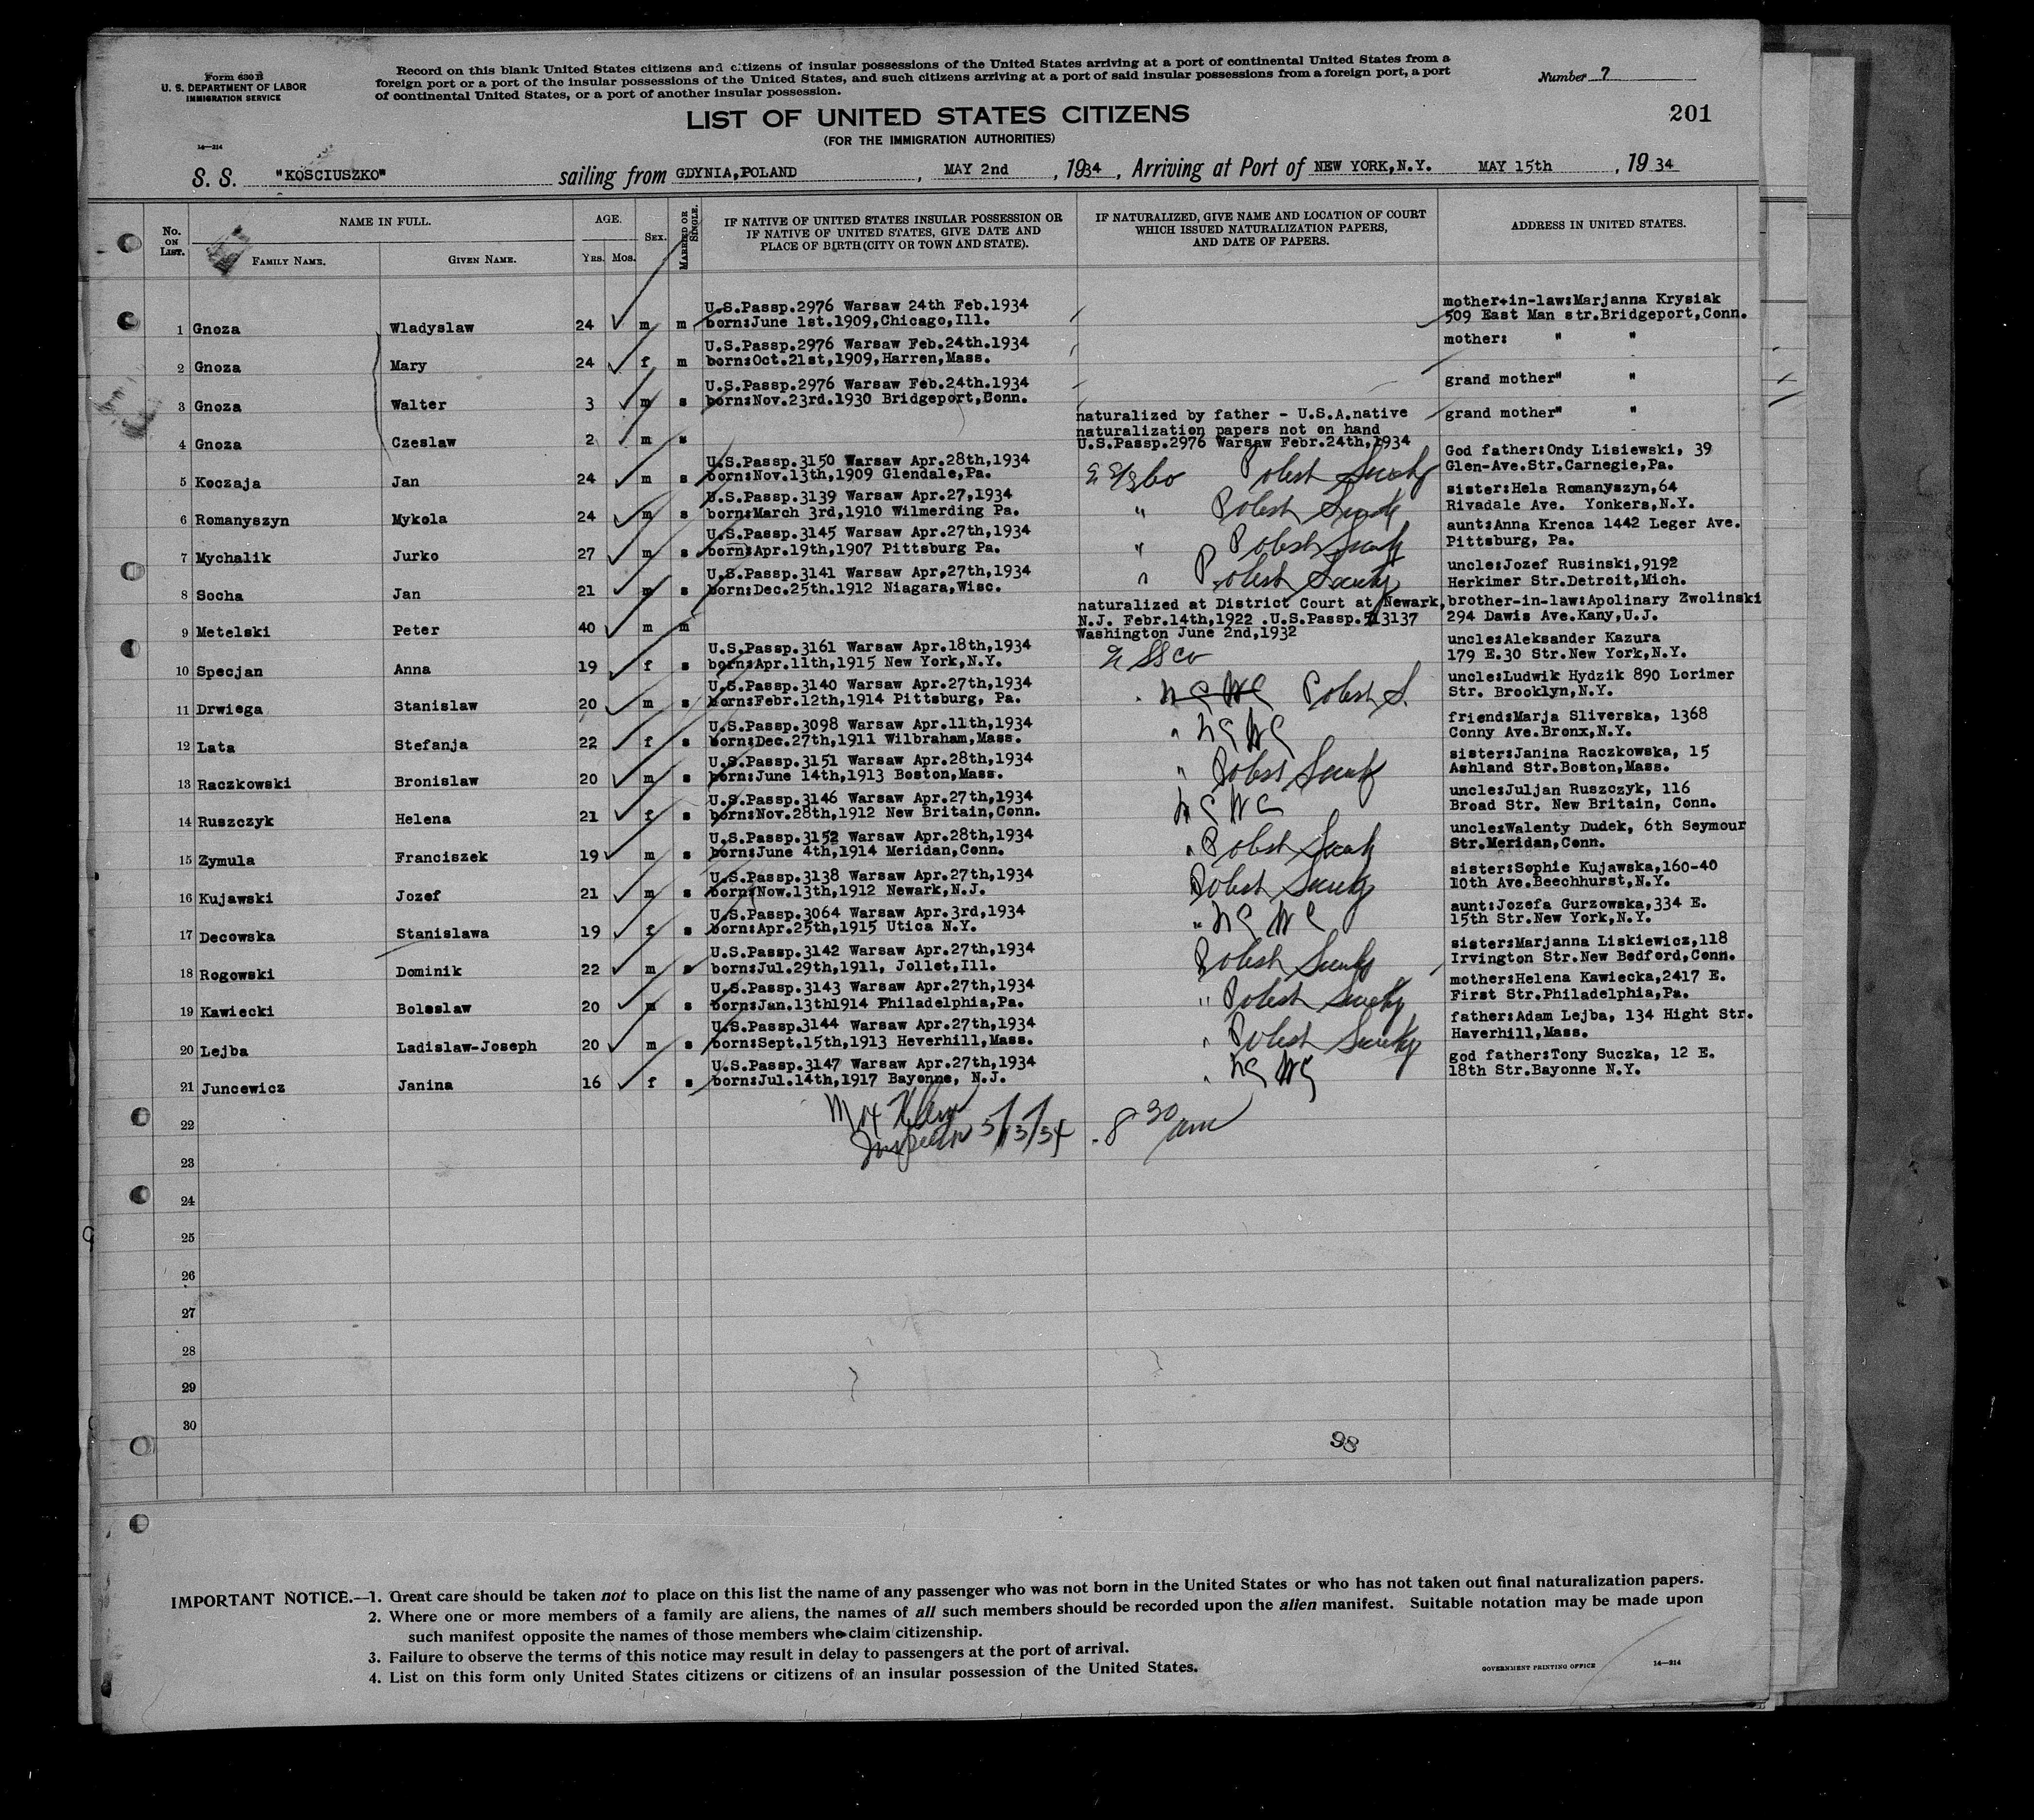 Form 630 B
U. S. DEPARTMENT OF LABOR
IMMIGRATION SERVICE
Record on this blank United States citizens and citizens of insular possessions of the United States arriving at a port of continental United States from a
foreign port or a port of the insular possessions of the United States, and such citizens arriving at a port of said insular possessions from a foreign port, a port
of continental United States, or a port of another insular possession.
Number 7
LIST OF UNITED STATES CITIZENS
201
(FOR THE IMMIGRATION AUTHORITIES)
14—214
S. S. "KOSCIUSZKO" sailing from GDYNIA,POLAND , MAY 2nd , 1934 , Arriving at Port of NEW YORK,N.Y. MAY 15th , 19 34
No. ON LIST.
NAME IN FULL.
FAMILY NAME. GIVEN NAME.
AGE.
YRS. MOS.
SEX.
MARRIED OR SINGLE.
IF NATIVE OF UNITED STATES INSULAR POSSESSION OR
IF NATIVE OF UNITED STATES, GIVE DATE AND
PLACE OF BIRTH (CITY OR TOWN AND STATE).
IF NATURALIZED, GIVE NAME AND LOCATION OF COURT
WHICH ISSUED NATURALIZATION PAPERS,
AND DATE OF PAPERS.
ADDRESS IN UNITED STATES.
U.S.Passp.2976 Warsaw 24th Feb.1934 mother-in-law:Marjanna Krysiak
1 Gnoza Wladyslaw 24 m m born:June 1st.1909,Chicago,Ill. 509 East Man str.Bridgeport,Conn.
U.S.Passp.2976 Warsaw Feb.24th.1934 mother: " "
2 Gnoza Mary 24 f m born:Oct.21st,1909,Harren,Mass.
U.S.Passp.2976 Warsaw Feb.24th.1934 grand mother" "
3 Gnoza Walter 3 m s born:Nov.23rd.1930 Bridgeport,Conn.
naturalized by father - U.S.A.native grand mother" "
naturalization papers not on hand
4 Gnoza Czeslaw 2 m s U.S.Passp.2976 Warsaw Febr.24th,1934
U.S.Passp.3150 Warsaw Apr.28th,1934 God father:Ondy Lisiewski, 39
5 Koczaja Jan 24 m s born:Nov.13th,1909 Glendale,Pa. Polish Society Glen-Ave.Str.Carnegie,Pa.
U.S.Passp.3139 Warsaw Apr.27,1934 sister:Hela Romanyszyn,64
6 Romanyszyn Mykola 24 m s born:March 3rd,1910 Wilmerding Pa. " Polish Society Rivadale Ave. Yonkers,N.Y.
U.S.Passp.3145 Warsaw Apr.27th,1934 aunt:Anna Krenca 1442 Leger Ave.
7 Mychalik Jurko 27 m s born:Apr.19th,1907 Pittsburg Pa. " Polish Society Pittsburg, Pa.
U.S.Passp.3141 Warsaw Apr,27th,1934 uncle:Jozef Rusinski,9192
8 Socha Jan 21 m s born:Dec.25th.1912 Niagara,Wisc. " Polish Society Herkimer Str.Detroit,Mich.
naturalized at District Court at Newark, brother-in-law:Apolinary Zwolinski
9 Metelski Peter 40 m m N.J. Febr.14th,1922 .U.S.Passp.513137 294 Dawis Ave.Kany,U.J.
Washington June 2nd,1932
U.S.Passp.3161 Warsaw Apr.18th,1934 uncle:Aleksander Kazura
10 Specjan Anna 19 f s born:Apr.11th,1915 New York,N.Y. 179 E.30 Str.New York,N.Y.
U.S.Passp.3140 Warsaw Apr.27th,1934 uncle:Ludwik Hydzik 890 Lorimer
11 Drwiega Stanislaw 20 m s born:Febr.12th,1914 Pittsburg, Pa. Polish S. Str. Brooklyn,N.Y.
U.S.Passp.3098 Warsaw Apr.11th,1934 friend:Marja Sliverska, 1368
12 Lata Stefanja 22 f s born:Dec.27th,1911 Wilbraham,Mass. Conny Ave.Bronx,N.Y.
U.S.Passp.3151 Warsaw Apr.28th,1934 sister:Janina Raczkowska, 15
13 Raczkowski Bronislaw 20 m s born:June 14th,1913 Boston,Mass. " Polish Society Ashland Str.Boston,Mass.
U.S.Passp.3146 Warsaw Apr.27th,1934 uncle:Juljan Ruszczyk, 116
14 Ruszczyk Helena 21 f s born:Nov.28th,1912 New Britain,Conn. Broad Str. New Britain, Conn.
U.S.Passp.3152 Warsaw Apr.28th,1934 uncle:Walenty Dudek, 6th Seymour
15 Zymula Franciszek 19 m s born:June 4th,1914 Meridan,Conn. " Polish Society Str.Meridan,Conn.
U.S.Passp.3138 Warsaw Apr.27th,1934 sister:Sophie Kujawska,160-40
16 Kujawski Jozef 21 m s born:Now.13th,1912 Newark,N.J. Polish Society 10th Ave.Beechhurst,N.Y.
U.S.Passp.3064 Warsaw Apr.3rd,1934 aunt:Jozefa Gurzowska,334 E.
17 Decowska Stanislawa 19 f s born:Apr.25th,1915 Utica N.Y. 15th Str.New York,N.Y.
U.S.Passp.3142 Warsaw Apr.27th,1934 sister:Marjanna Liskiewicz,118
18 Rogowski Dominik 22 m s born:Jul.29th,1911, Jollet,Ill. Polish Society Irvington Str.New Bedford,Conn.
U.S.Passp.3143 Warsaw Apr.27th,1934 mother:Helena Kawiecka,2417 E.
19 Kawiecki Boleslaw 20 m s born:Jan.13th1914 Philadelphia,Pa. " Polish Society First Str.Philadelphia,Pa.
U.S.Passp.3144 Warsaw Apr.27th,1934 father:Adam Lejba, 134 Hight Str.
20 Lejba Ladislaw-Joseph 20 m s born:Sept.15th,1913 Heverhill,Mass. " Polish Society Haverhill,Mass.
U.S.Passp.3147 Warsaw Apr.27th,1934 god father:Tony Suczka, 12 E.
21 Juncewicz Janina 16 f s born:Jul.14th,1917 Bayonne, N.J. 18th Str.Bayonne N.Y.
22
Inspector 5/15/34 8 30 am
23
24
25
26
27
28
29
30
98
IMPORTANT NOTICE.—1. Great care should be taken not to place on this list the name of any passenger who was not born in the United States or who has not taken out final naturalization papers.
2. Where one or more members of a family are aliens, the names of all such members should be recorded upon the alien manifest. Suitable notation may be made upon
such manifest opposite the names of those members who claim citizenship.
3. Failure to observe the terms of this notice may result in delay to passengers at the port of arrival.
4. List on this form only United States citizens or citizens of an insular possession of the United States.
GOVERNMENT PRINTING OFFICE 14—214